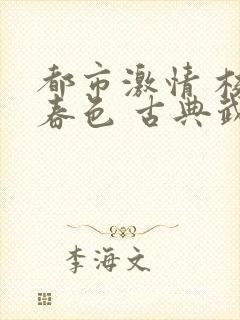 都市激情 校
春色 古典武
李海文